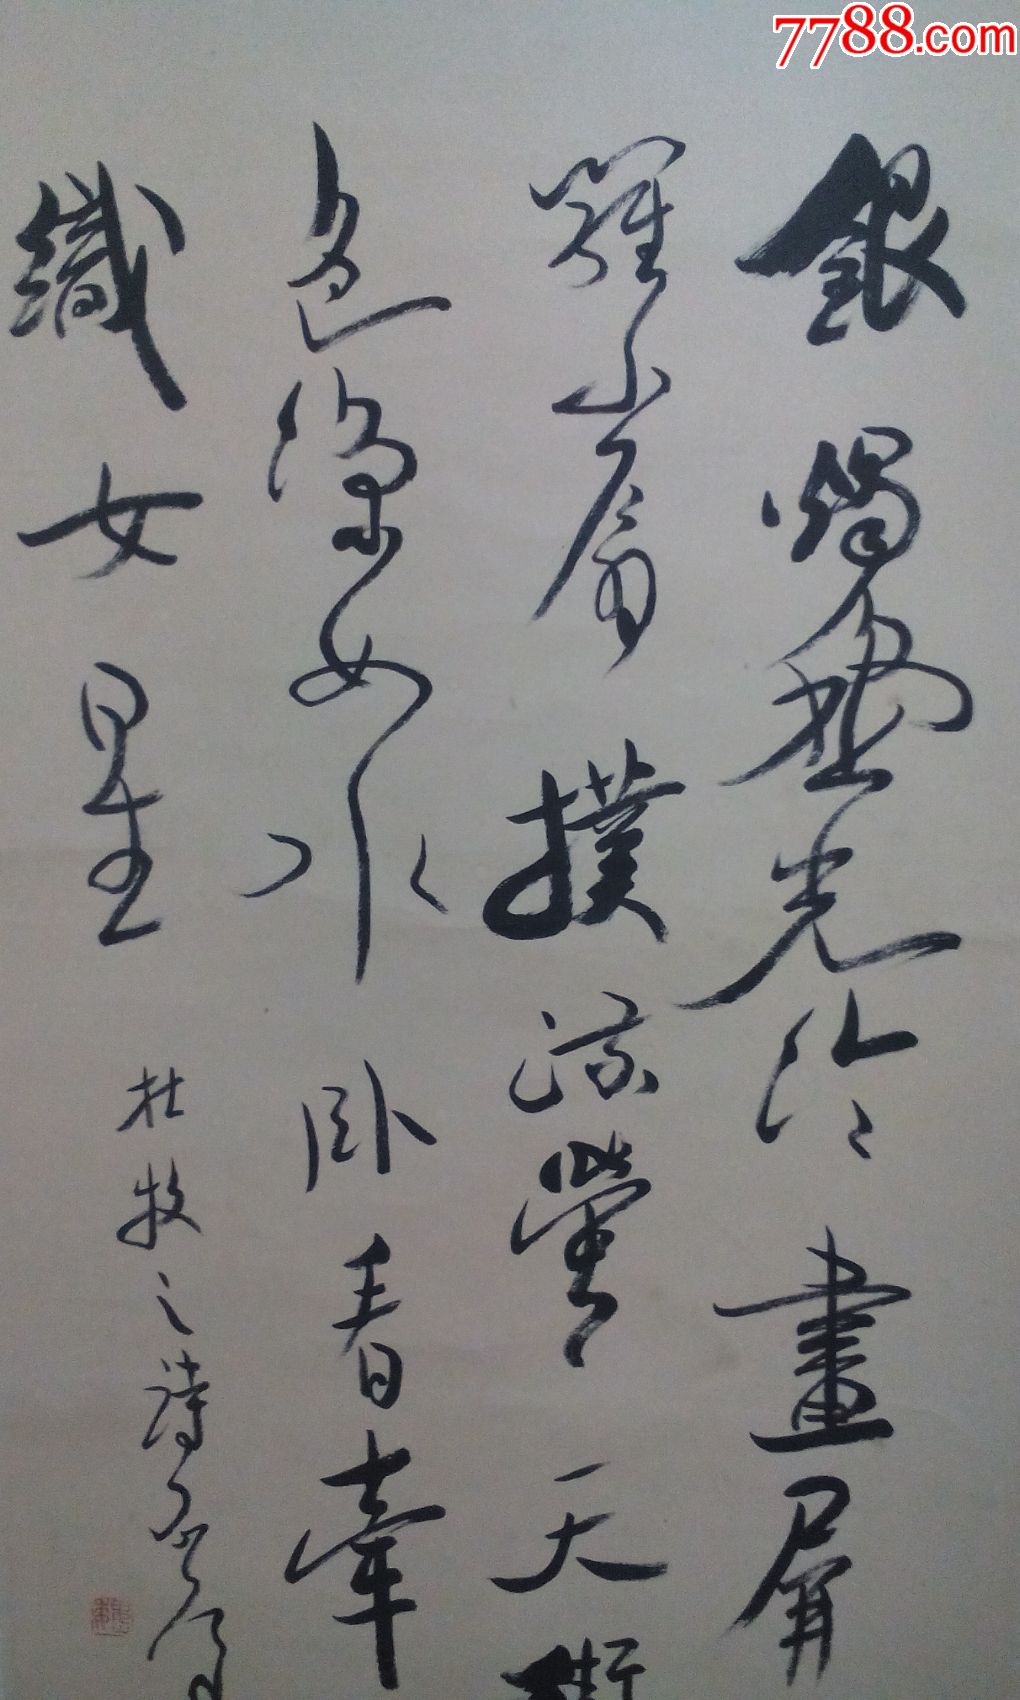 7788.com
銀燭秋光冷畫屏
羅小扇撲流螢天街
色涼如水臥看牽
織女星
杜牧之詩